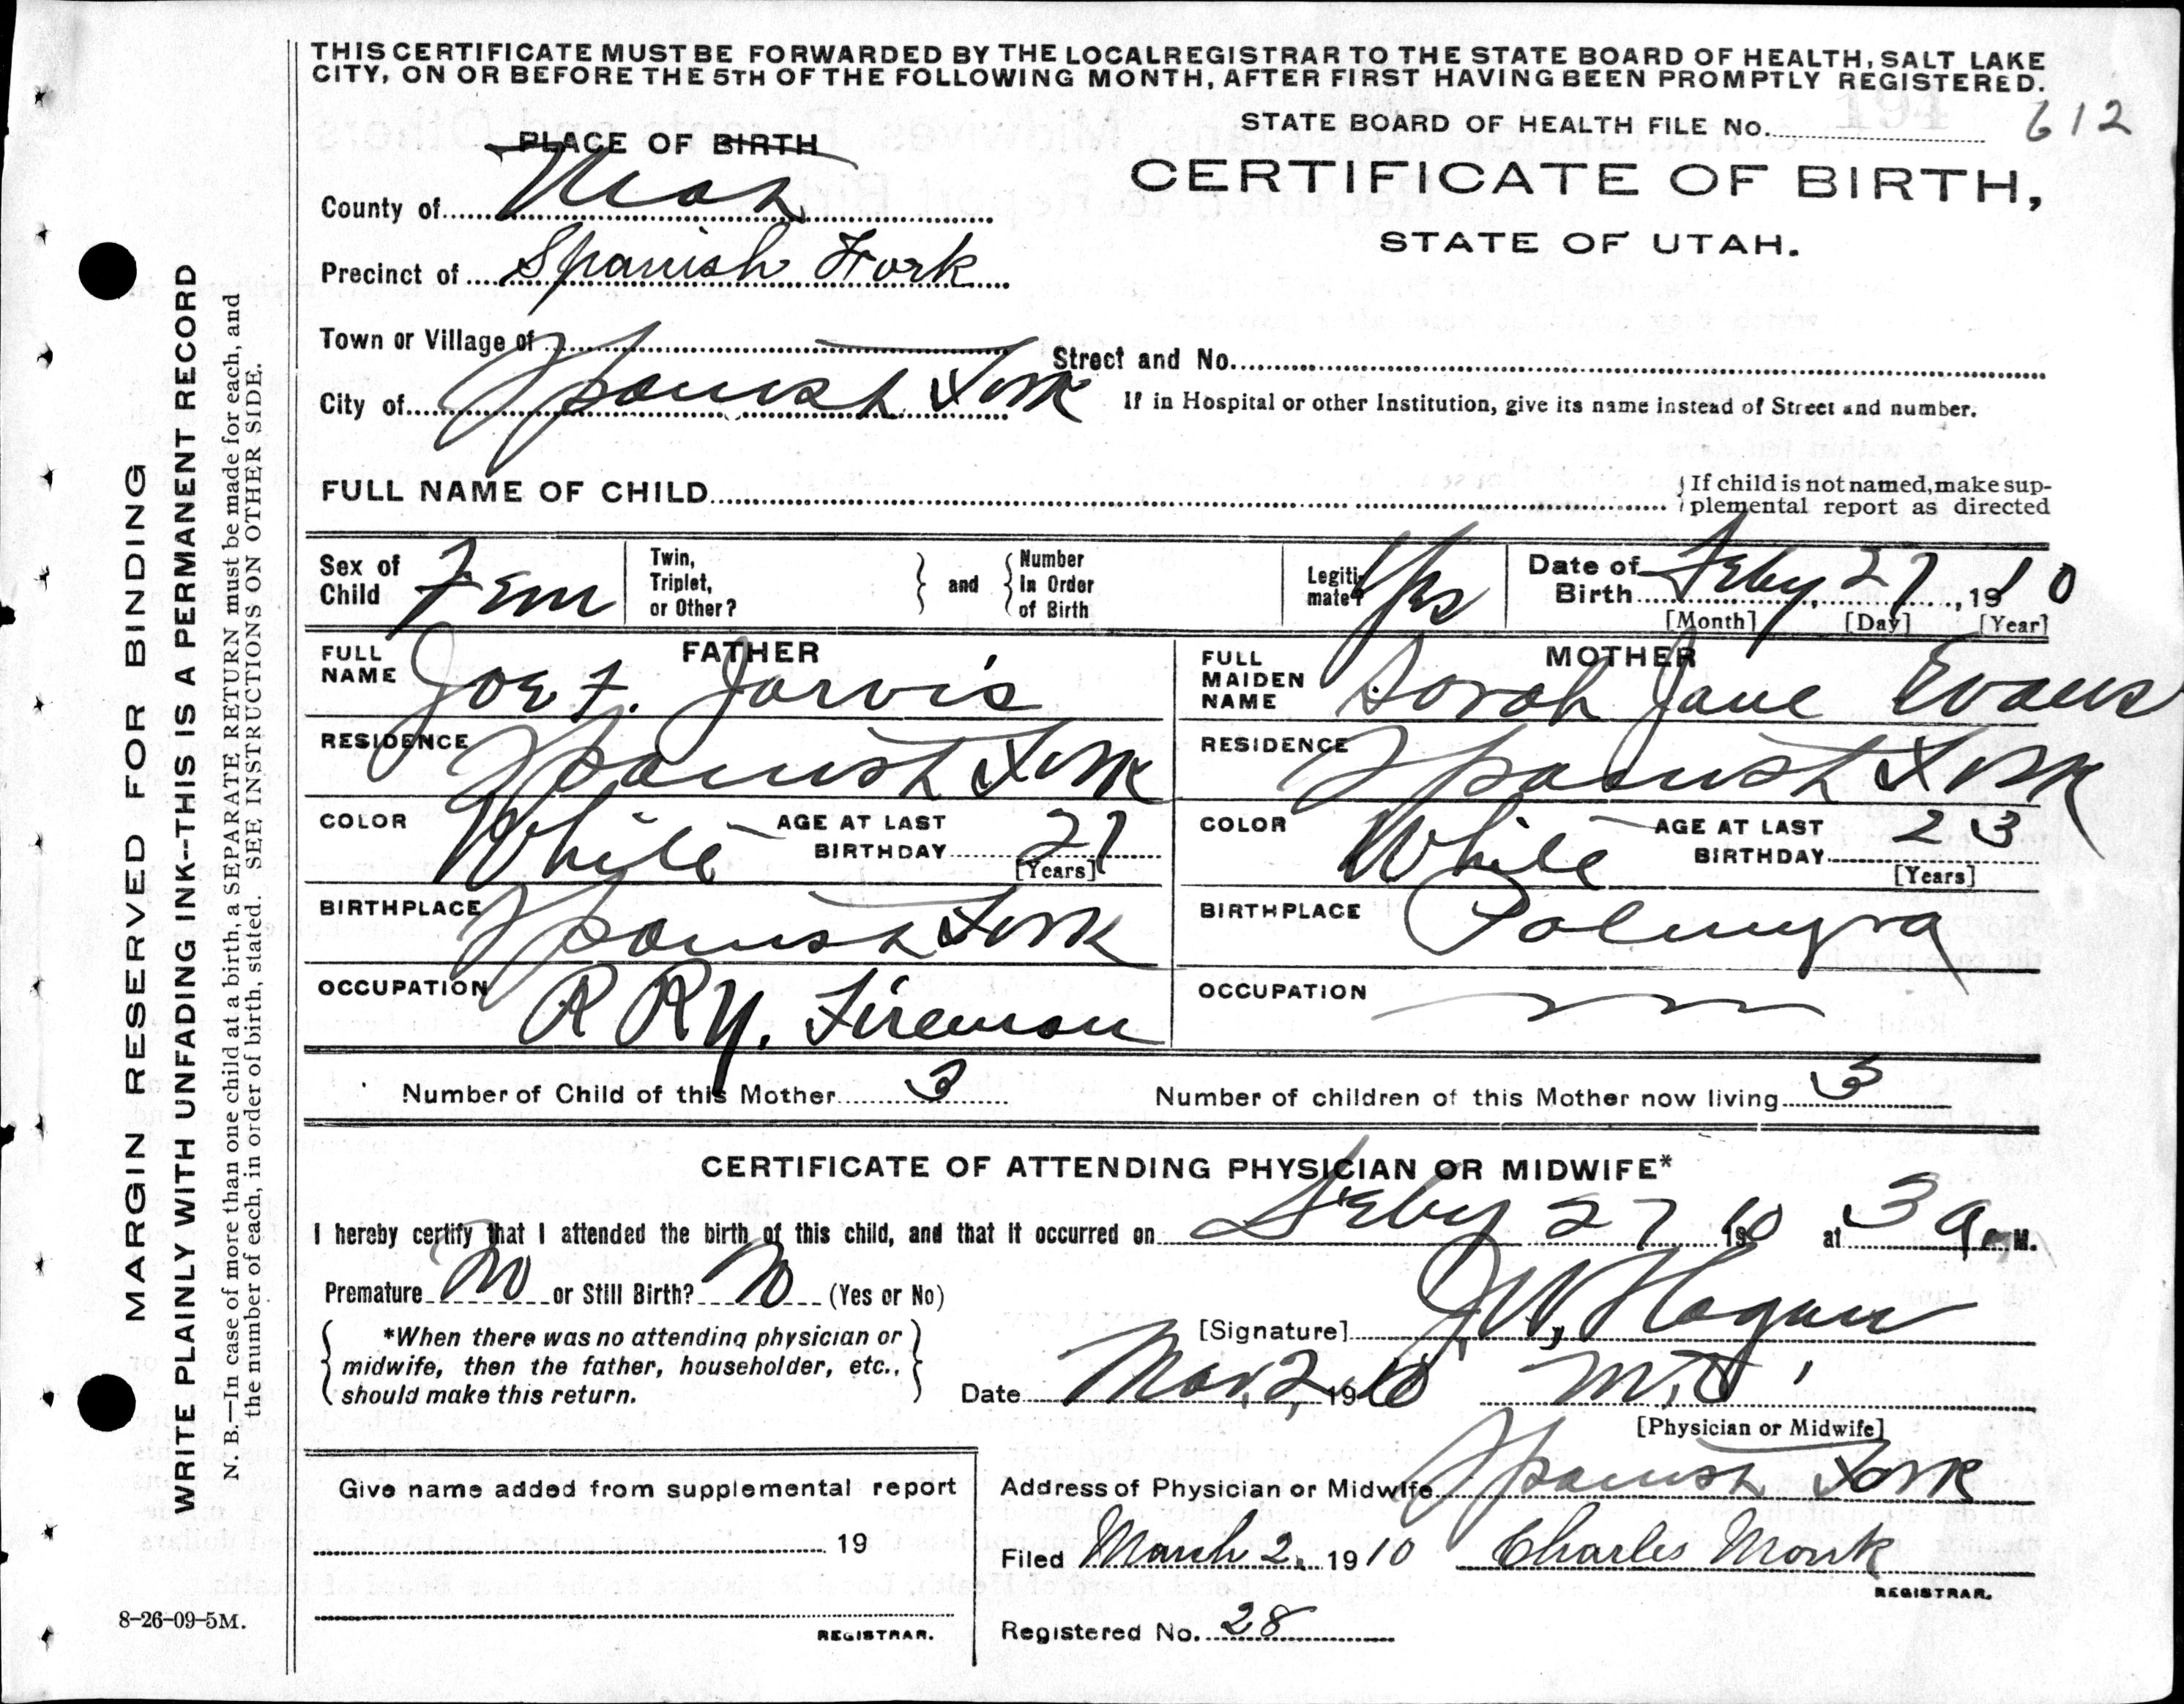 THIS CERTIFICATE MUST BE FORWARDED BY THE LOCAL REGISTRAR TO THE STATE BOARD OF HEALTH, SALT LAKE
CITY, ON OR BEFORE THE 5TH OF THE FOLLOWING MONTH, AFTER FIRST HAVING BEEN PROMPTLY REGISTERED.
STATE BOARD OF HEALTH FILE No. 194 612
PLACE OF BIRTH
CERTIFICATE OF BIRTH,
STATE OF UTAH.
County of Utah
Precinct of Spanish Fork
Town or Village of
Street and No.
City of Spanish Fork
If in Hospital or other Institution, give its name instead of Street and number.
FULL NAME OF CHILD
{ If child is not named, make sup-
plemental report as directed
Sex of Child Fem
Twin, Triplet, or Other? } and { Number In Order of Birth
Legiti- mate? Yes
Date of Birth Feby 27, 1910
[Month] [Day] [Year]
FATHER
FULL NAME Joe F. Jarvis
MOTHER
FULL MAIDEN NAME Sarah Jane Evans
RESIDENCE Spanish Fork
RESIDENCE Spanish Fork
COLOR White AGE AT LAST BIRTHDAY 27 [Years]
COLOR White AGE AT LAST BIRTHDAY 23 [Years]
BIRTHPLACE Spanish Fork
BIRTHPLACE Palmyra
OCCUPATION R Ry. Fireman
OCCUPATION
Number of Child of this Mother 3 Number of children of this Mother now living 3
CERTIFICATE OF ATTENDING PHYSICIAN OR MIDWIFE*
I hereby certify that I attended the birth of this child, and that it occurred on Feby 27 1910 at 3 a. M.
Premature No or Still Birth? No (Yes or No)
{ *When there was no attending physician or
midwife, then the father, householder, etc.,
should make this return. }
[Signature] J. W. Hagan
Date Mar. 2, 1910 M.D.
[Physician or Midwife]
Give name added from supplemental report
19
REGISTRAR.
Address of Physician or Midwife Spanish Fork
Filed March 2, 1910 Charles Monk
REGISTRAR.
Registered No. 28
8-26-09-5M.
MARGIN RESERVED FOR BINDING
WRITE PLAINLY WITH UNFADING INK--THIS IS A PERMANENT RECORD
N. B.—In case of more than one child at a birth, a SEPARATE RETURN must be made for each, and
the number of each, in order of birth, stated. SEE INSTRUCTIONS ON OTHER SIDE.